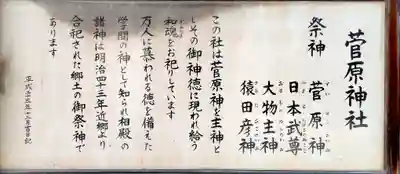 菅原神社
祭神 菅原神
日本武尊
大物主神
猿田彦神
この社は菅原神を主神と
しその御神徳に現われ給う
和魂をお祀りしています
万人に慕われる徳を備えた
学問の神として知られ相殿の
諸神は明治四十三年近郷より
合祀された郷土の御祭神で
あります